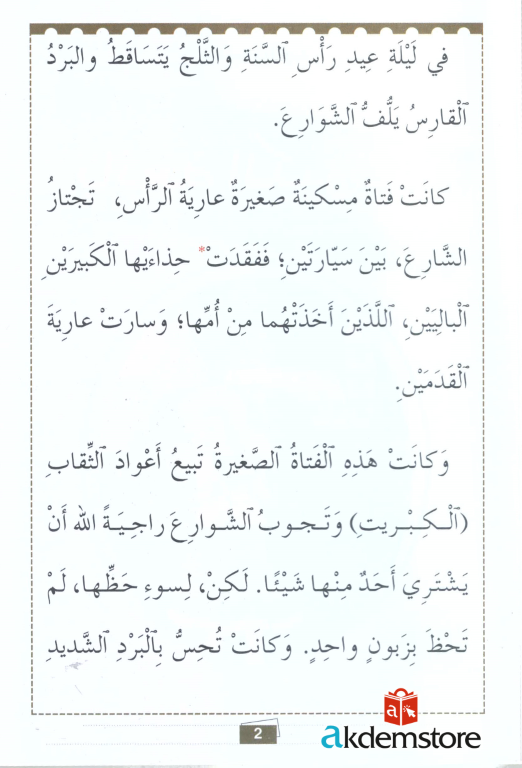 في لَيْلَةِ عِيدِ رَأْسِ ٱلسَّنَةِ وَالثَّلْجُ يَتَسَاقَطُ والبَرْدُ
ٱلْقارِسُ يَلُفُّ الشَّوَارِعَ.
كانَتْ فَتاةٌ مِسْكينَةٌ صَغيرَةٌ عارِيَةُ ٱلرَّأْسِ، تَجْتازُ
الشَّارِعَ، بَيْنَ سَيّارَتَيْنِ؛ فَفَقَدَتْ* حِذاءَيْها ٱلْكَبيرَيْنِ
ٱلْبالِيَيْنِ، ٱللَّذَيْنَ أَخَذَتْهُما مِنْ أُمِّها؛ وَسارَتْ عارِيَةَ
ٱلْقَدَمَيْنِ.
وَكانَتْ هَذِهِ ٱلْفَتاةُ الصَّغيرةُ تَبيعُ أَعْوادَ الثِّقابِ
(ٱلْكِبْريتِ) وَتَجوبُ الشَّوارِعَ راجِيَةً الله أَنْ
يَشْتَرِيَ أَحَدٌ مِنْها شَيْئًا. لَكِنْ، لِسوءِ حَظِّها، لَمْ
تَحْظَ بِزَبونٍ واحِدٍ. وَكانَتْ تُحِسُّ بِٱلْبَرْدِ الشَّديدِ
2
akdemstore